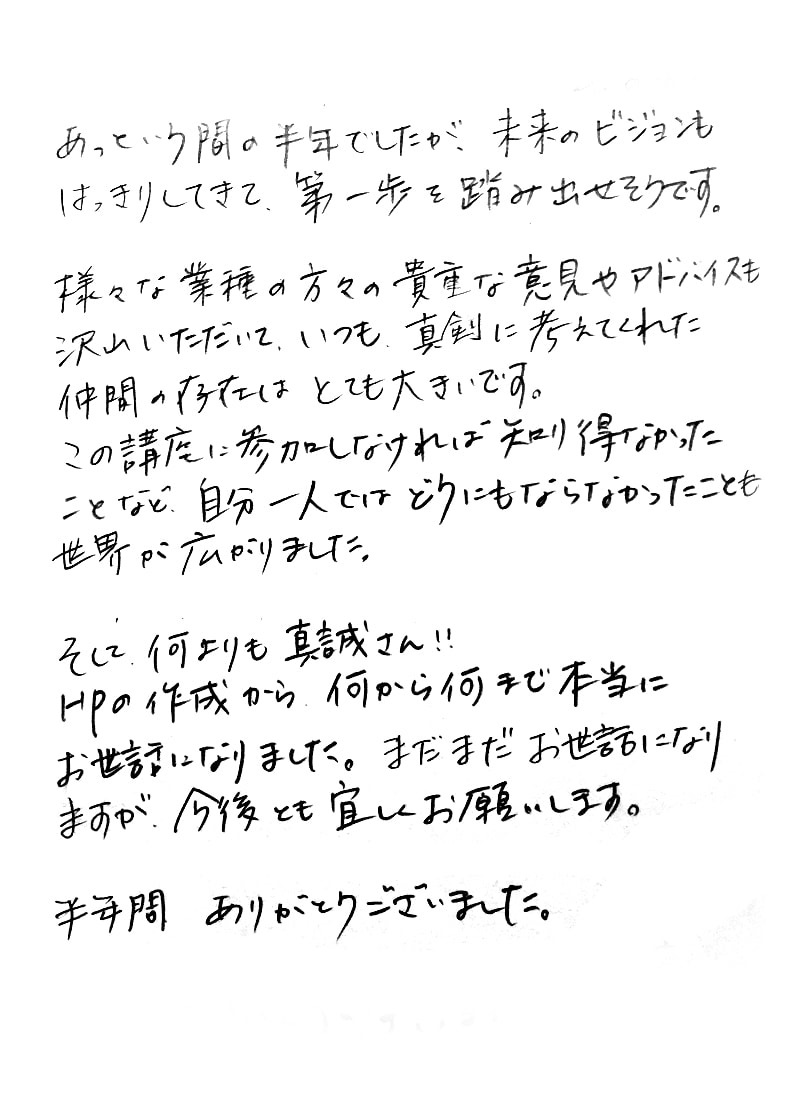 あっという間の半年でしたが、未来のビジョンも
はっきりしてきて、第一歩を踏み出せそうです。
様々な業種の方々の貴重な意見やアドバイスも
沢山いただいて、いつも、真剣に考えてくれた
仲間の存在はとても大きいです。
この講座に参加しなければ知り得なかった
ことなど、自分一人ではどうにもならなかったことも
世界が広がりました。
そして、何よりも真誠さん!!
HPの作成から、何から何まで本当に
お世話になりました。まだまだお世話になり
ますが、今後とも宜しくお願いします。
半年間 ありがとうございました。